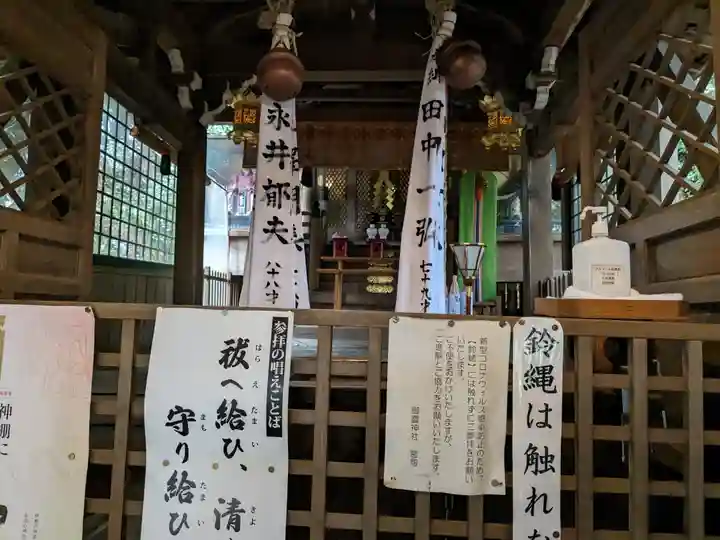 永井郁夫
八十八才
田中一弥
七十九才
神棚に
参拝の唱えことば
祓へ給ひ、清
はらえたまい
きよ
守り給ひ
まもたまい
新型コロナウイルス感染防止のため、
【鈴縄】には触れずに三拝をお願い
いたします。
ご不便をおかけいたしますが、
ご理解とご協力をお願いいたします。
御霊神社 宮司
鈴縄は触れな